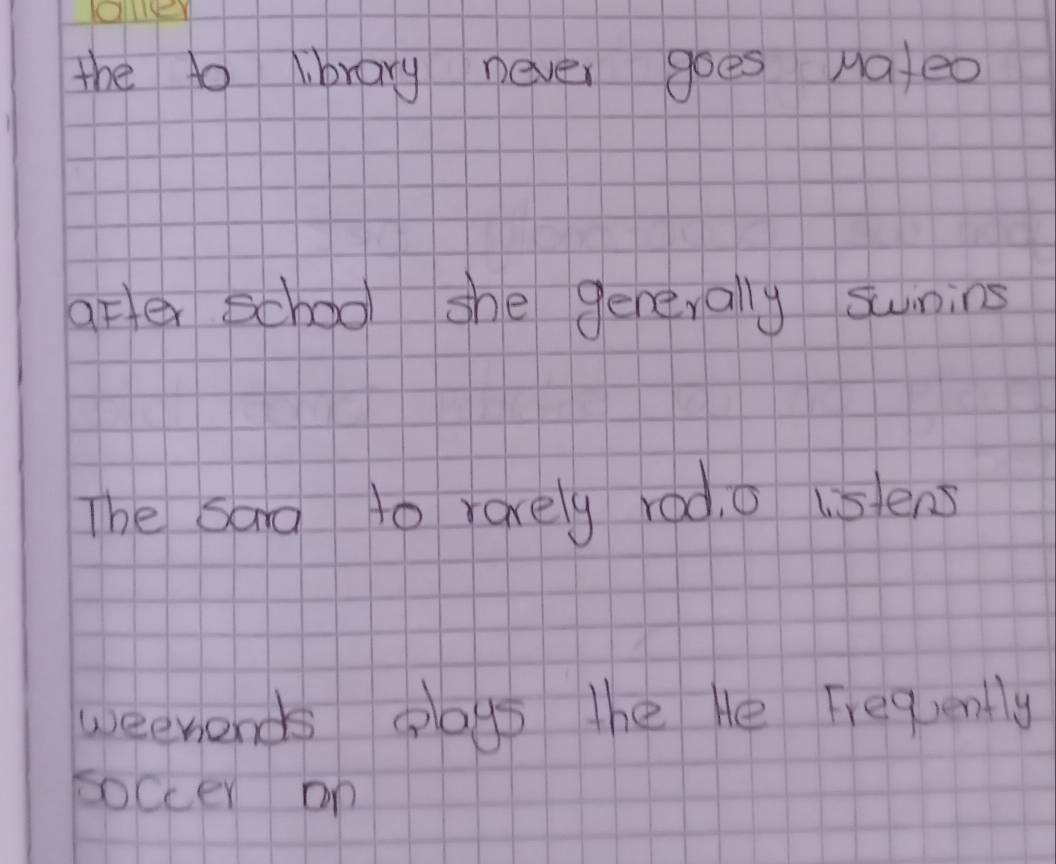 Taller
the to library never goes Mateo
after school she generally swinins
The Sara to rarely radio listens
weekends plays the He Frequently
soccer on